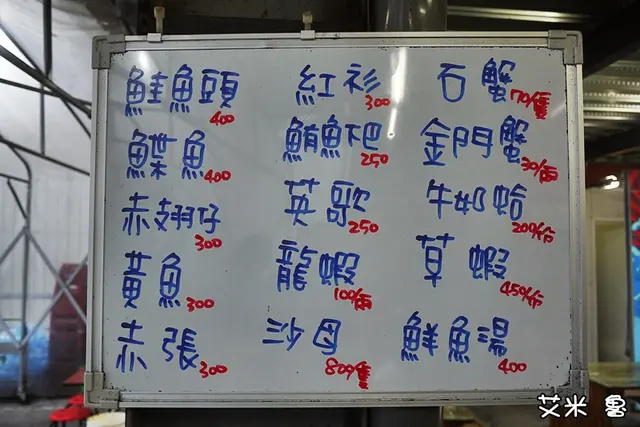 鮭魚頭 400
鰈魚 400
赤翅仔 300
黃魚 300
赤張 300
紅衫 300
鮪魚肚 250
英歌 250
龍蝦 100/兩
沙母 80/隻
石蟹 170/隻
金門蟹 30/兩
牛奶蛤 200/份
草蝦 450/份
鮮魚湯 400
艾米 魯